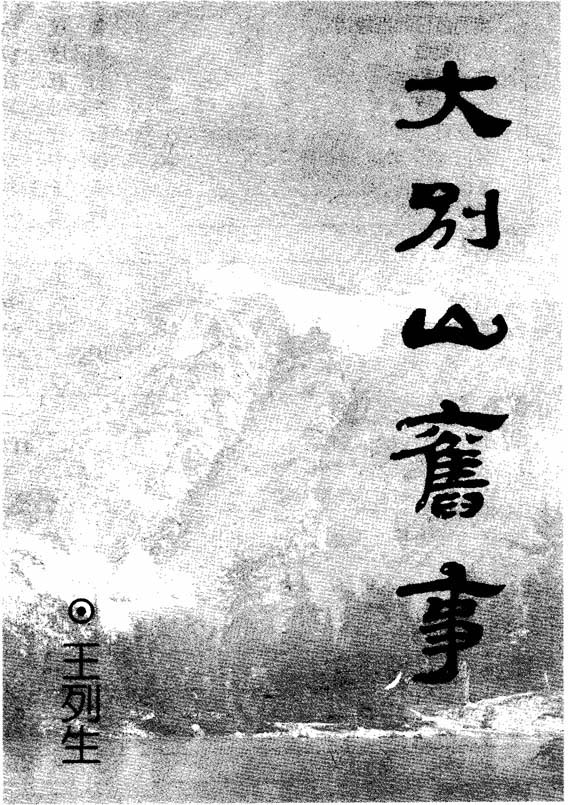 大别山舊事
⊙王列生